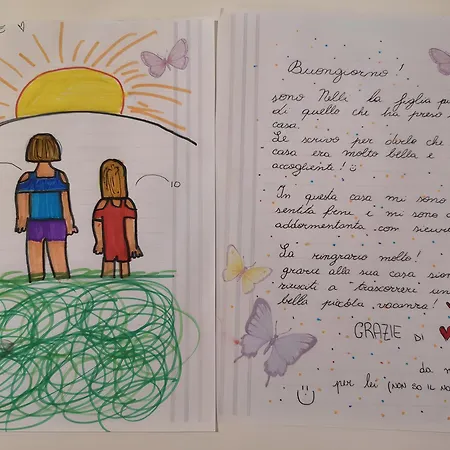 E ♡
IO
Buongiorno!
sono Nelli la figlia
di quello che ha preso
casa.
Le scrivo per dirle che
casa era molto bella e
accogliente! ☺
In questa casa mi sono
sentita bene, e mi sono
addormentanta con
La ringrazio molto!
grazie alla sua casa
riusciti a trascorrere un
bella piccola vacanza!
GRAZIE DI
da
per lei (NON SO IL